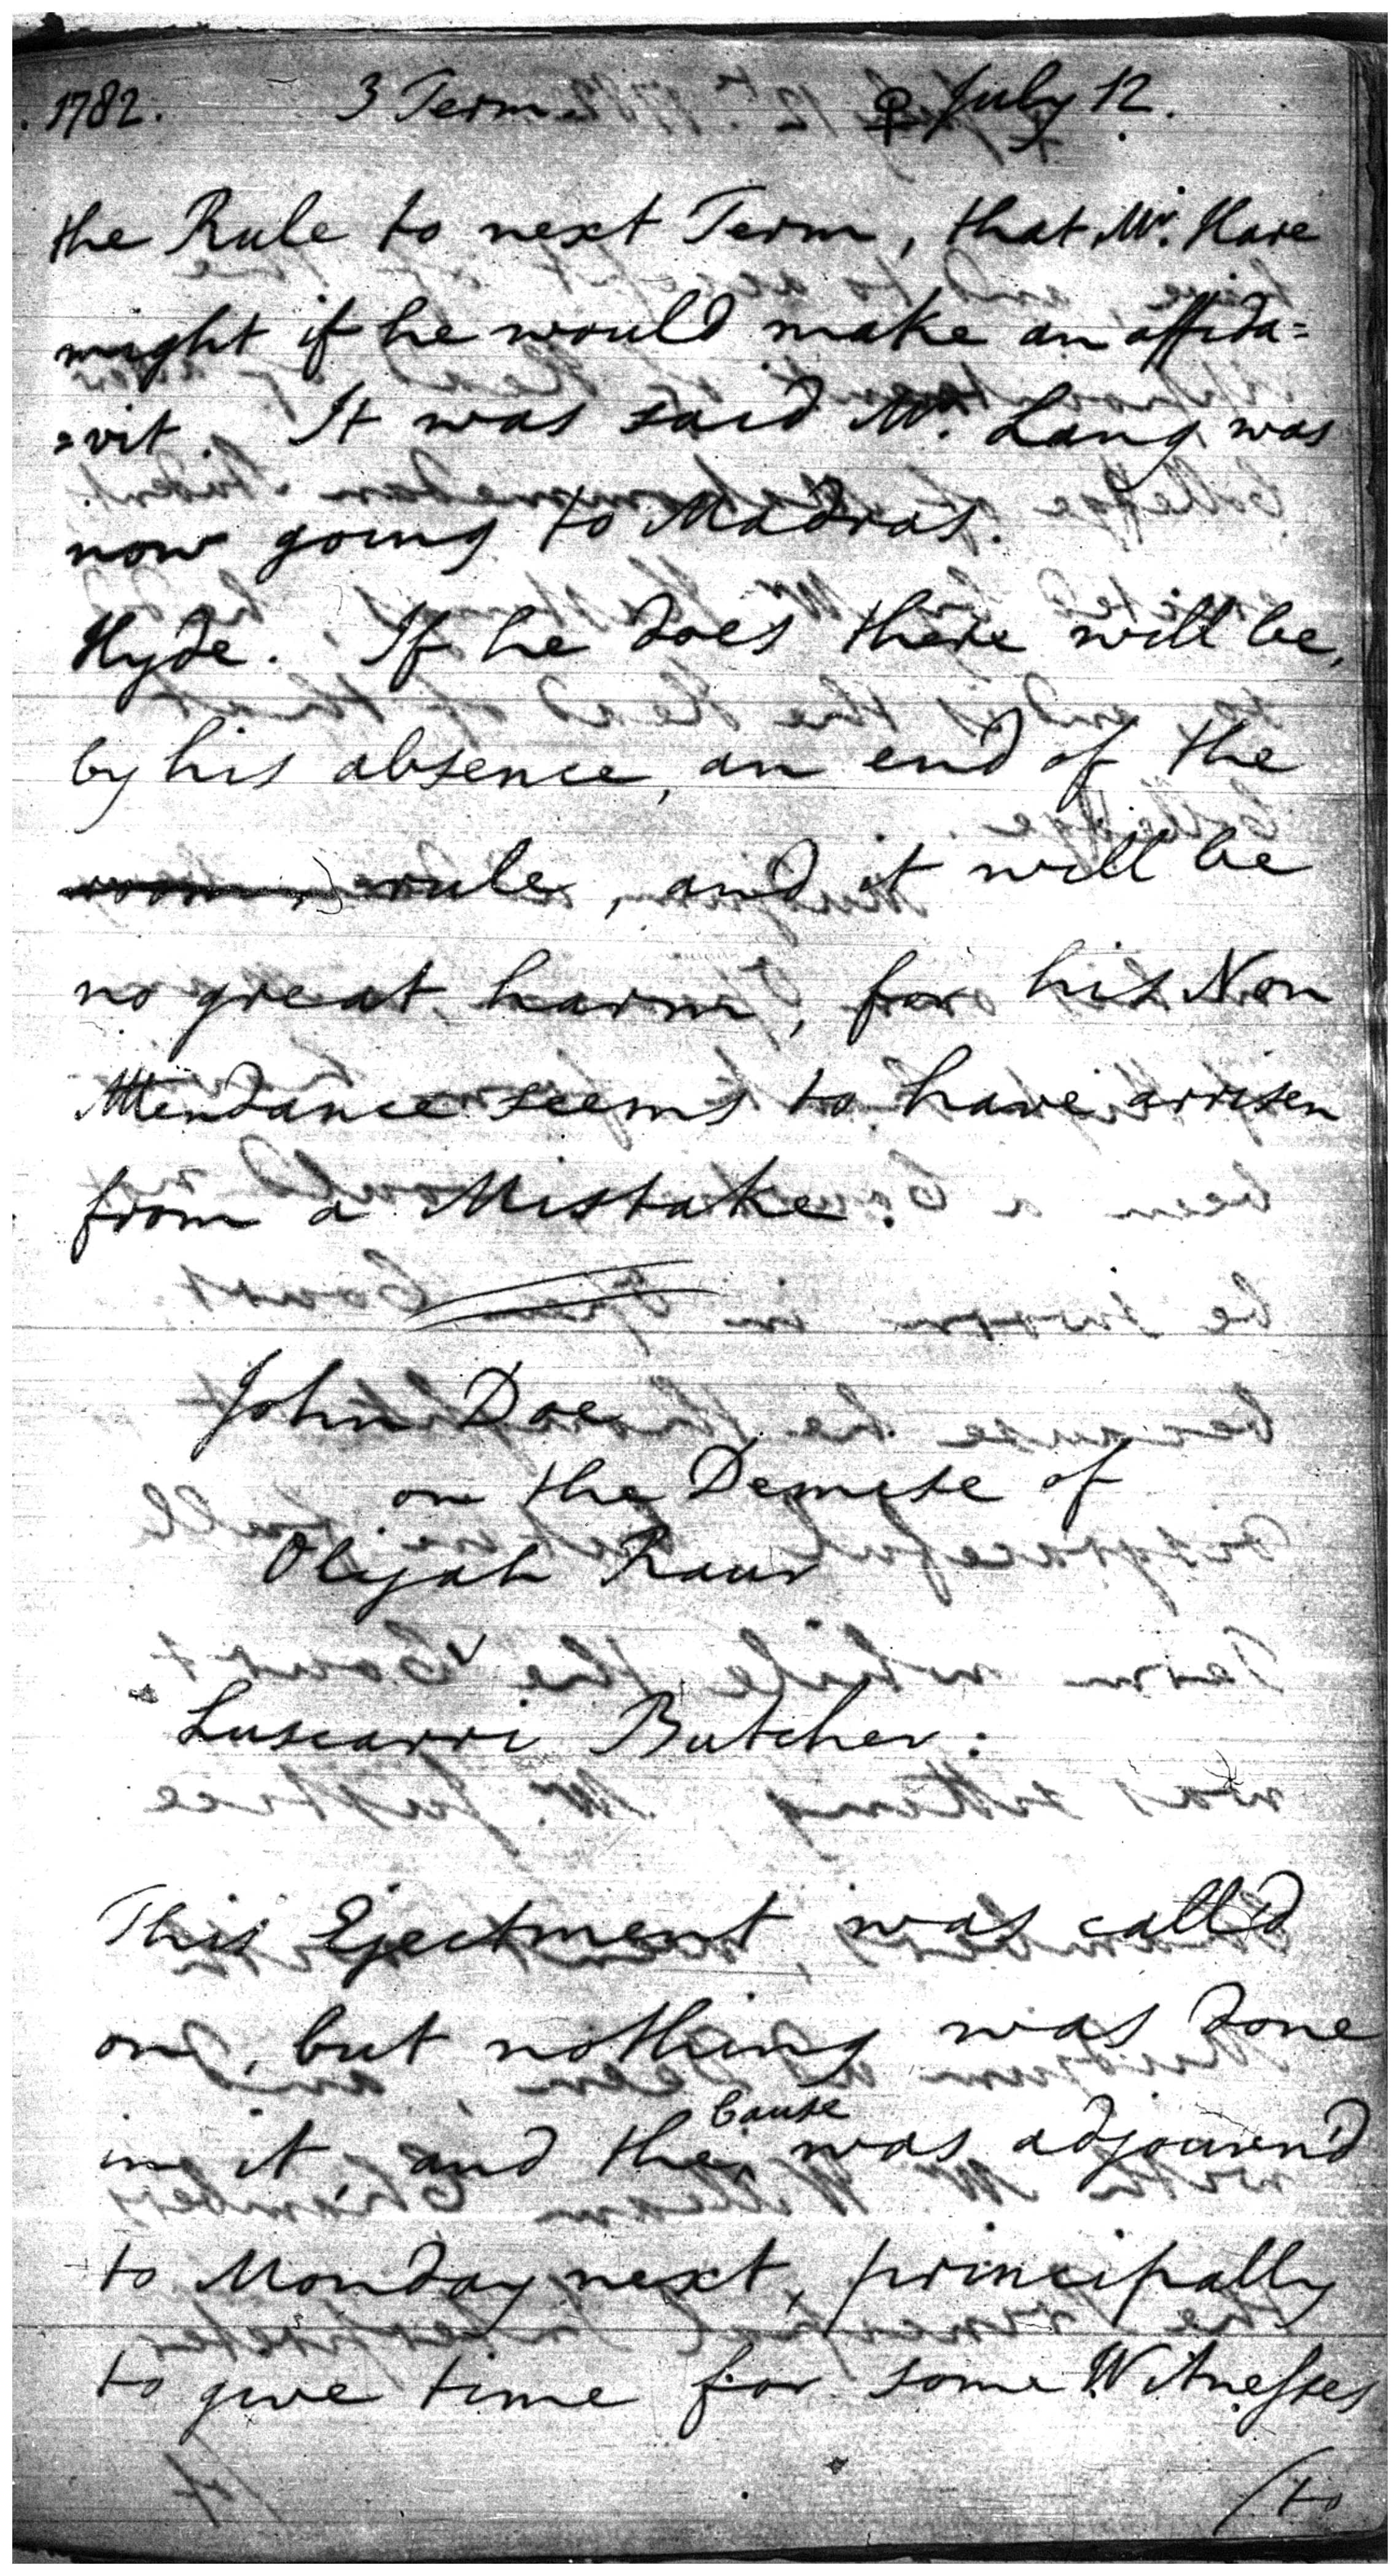 1782. 3 Term ♀ July 12.
the Rule to next Term, that Mr. Hare
might if he would make an affida=
=vit. It was said Mr. Lang was
now going to Madras.
Hyde. If he does there will be,
by his absence, an end of the
rule, and it will be
no great harm, for his Non
Attendance seems to have arrisen
from a Mistake.
John Doe
on the Demise of
Olijah Raur
v
Luscarri Butcher:
This Ejectment was call'd
on, but nothing was done
in it, and the ^Cause was adjourn'd
to Monday next, principally
to give time for some Witnesses
/to